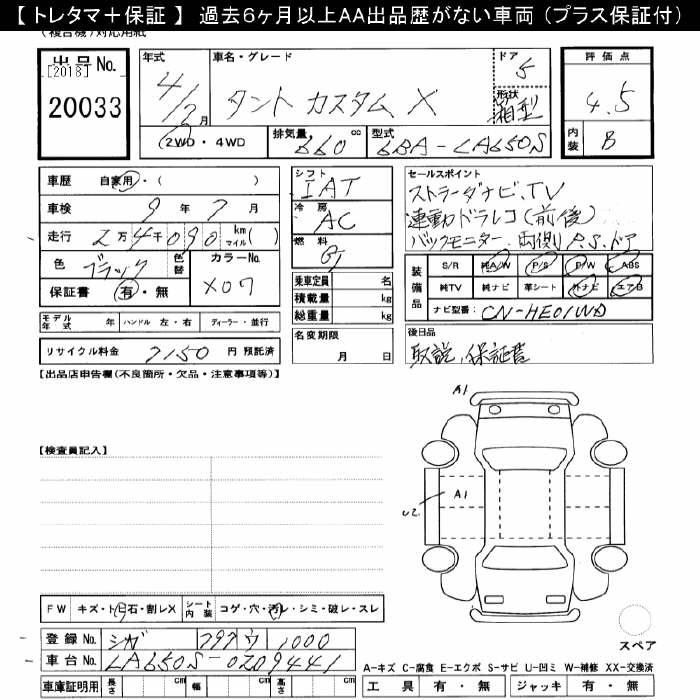 【 トレタマ＋保証 】 過去6ヶ月以上AA出品歴がない車両（プラス保証付）
(複合機)対応用紙
出品No.
[2018]
20033
年式
4/12月
車名・グレード
タント カスタム X
ドア
5
形状
箱型
評価点
4.5
内装
B
2WD・4WD
排気量
660 cc
型式
6BA-LA650S
車歴 自家用・( )
車検 9年 7月
走行 2万4千090 km マイル( )
色 ブラック
色替
カラーNo.
X07
保証書 有・無
シフト
IAT
冷房
AC
燃料
乗車定員 名
積載量 kg
総重量 kg
セールスポイント
ストラーダナビ、TV
連動ドラレコ(前後)
バックモニター、両側P.S.ドア
装備品
S/R 純A/W P/S P/W ABS
純TV 純ナビ 革シート 外ナビ エアB
ナビ型番( CN-HE01WD )
モデル年式 年 ハンドル 左・右 ディーラー・並行
リサイクル料金 7150 円 預託済
名変期限
月 日
後日品
取説、保証書
【出品店申告欄(不良箇所・欠品・注意事項等)】
【検査員記入】
A1
A1
U2
FW キズ・トビ石・割レX シート内装 コゲ・穴・汚レ・シミ・破レ・スレ
登録No. シガ ウ 1000
車台No. LA650S-0209441
車庫証明用 長さ cm 幅 cm 高さ cm
スペア
A-キズ C-腐食 E-エクボ S-サビ U-凹ミ W-補修 XX-交換済
工具 有・無 ジャッキ 有・無